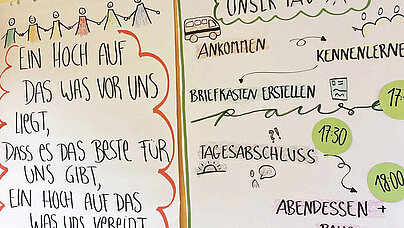 EIN HOCH AUF
DAS WAS VOR UNS
LIEGT,
DASS ES DAS BESTE FÜR
UNS GIBT,
EIN HOCH AUF DAS
WAS UNS VEREINT
UNSER
ANKOMMEN
KENNENLERNE
BRIEFKÄSTEN ERSTELLEN
pause
17:
17:30
TAGESABSCHLUSS
?!
18:00
ABENDESSEN +